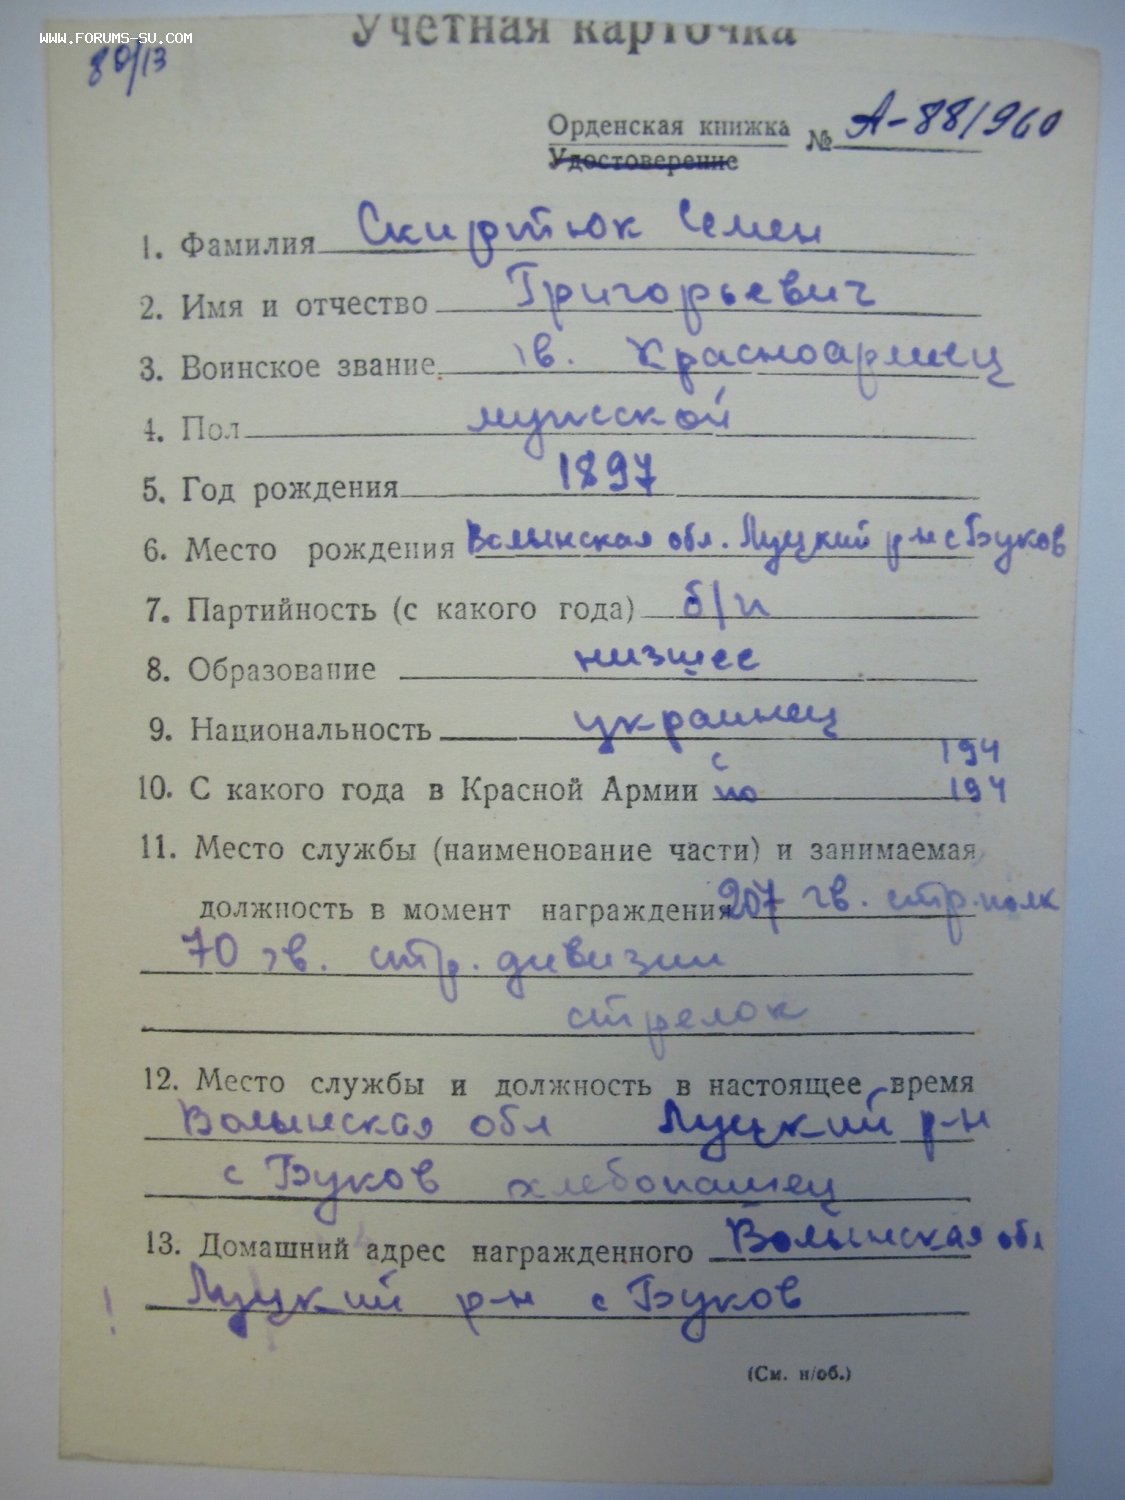 WWW.FORUMS-SU.COM
Учетная карточка
80/13
Орденская книжка № А-881960
Удостоверение
1. Фамилия Скиртюк Семен
2. Имя и отчество Григорьевич
3. Воинское звание гв. Красноармеец
4. Пол мужской
5. Год рождения 1897
6. Место рождения Волынская обл. Луцкий р-н с Буков
7. Партийность (с какого года) б/п
8. Образование низшее
9. Национальность украинец
с 194
10. С какого года в Красной Армии по 194
11. Место службы (наименование части) и занимаемая
должность в момент награждения 207 гв. стр. полк
70 гв. стр. дивизии
стрелок
12. Место службы и должность в настоящее время
Волынская обл Луцкий р-н
с Буков хлебопашец
13. Домашний адрес награжденного Волынская обл
Луцкий р-н с Буков
(См. н/об.)